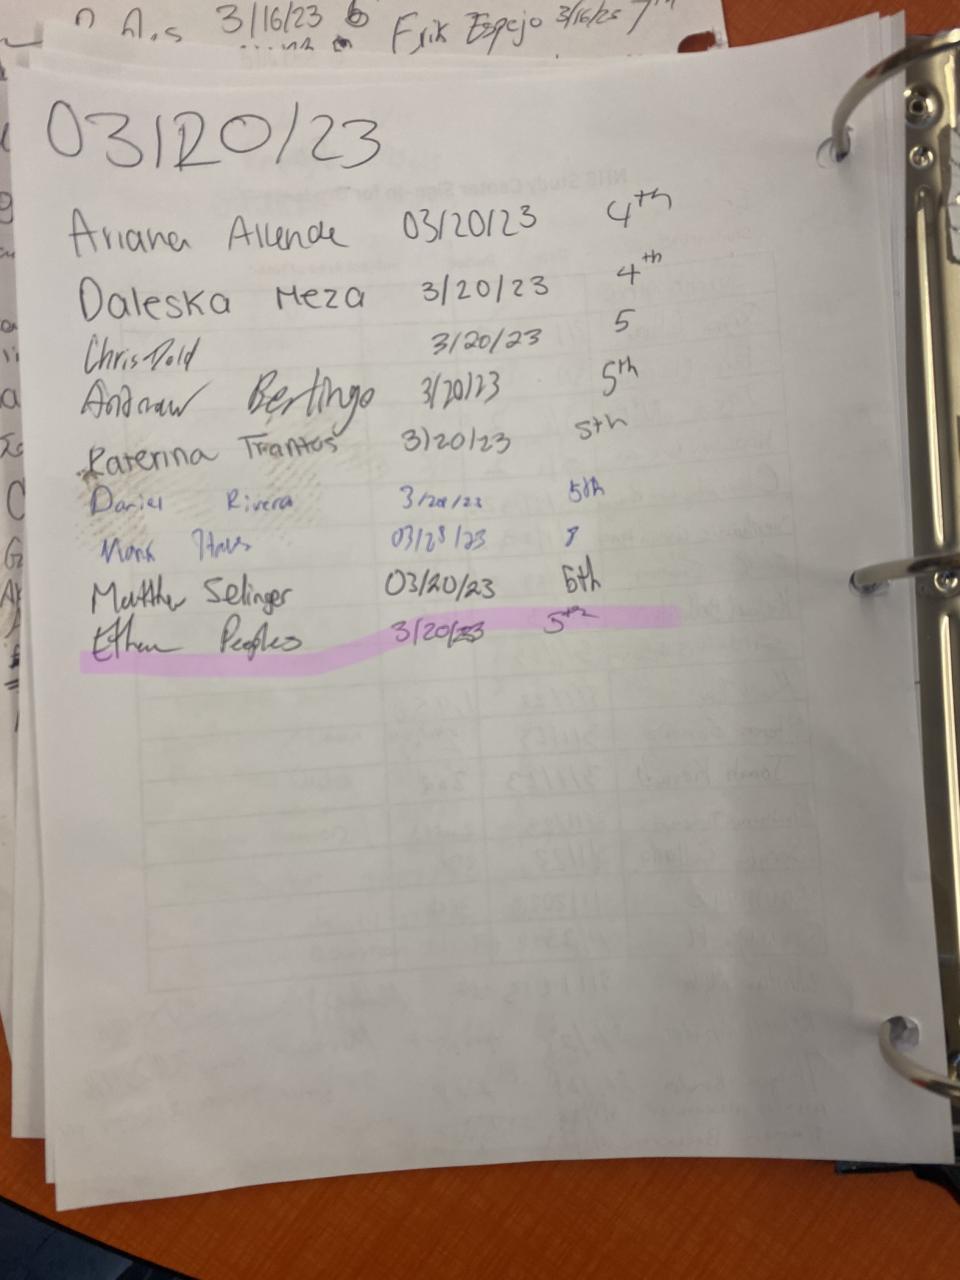 3/16/23 6 Erik Espejo 3/16/23 7th
03/20/23
Ariana Allende 03/20/23 4th
Daleska Meza 3/20/23 4th
Chris Dold 3/20/23 5
Andraw Bertingo 3/20/23 5th
Katerina Trantos 3/20/23 5th
Daniel Rivera 3/20/23 5th
Mark 03/28/23 8
Matthew Selinger 03/20/23 6th
Ethan Peoples 3/20/23 5th